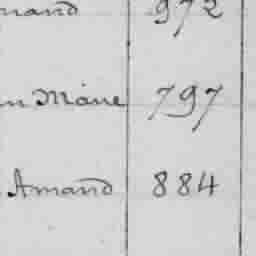 mand 972
en Marie 797
Amand 884